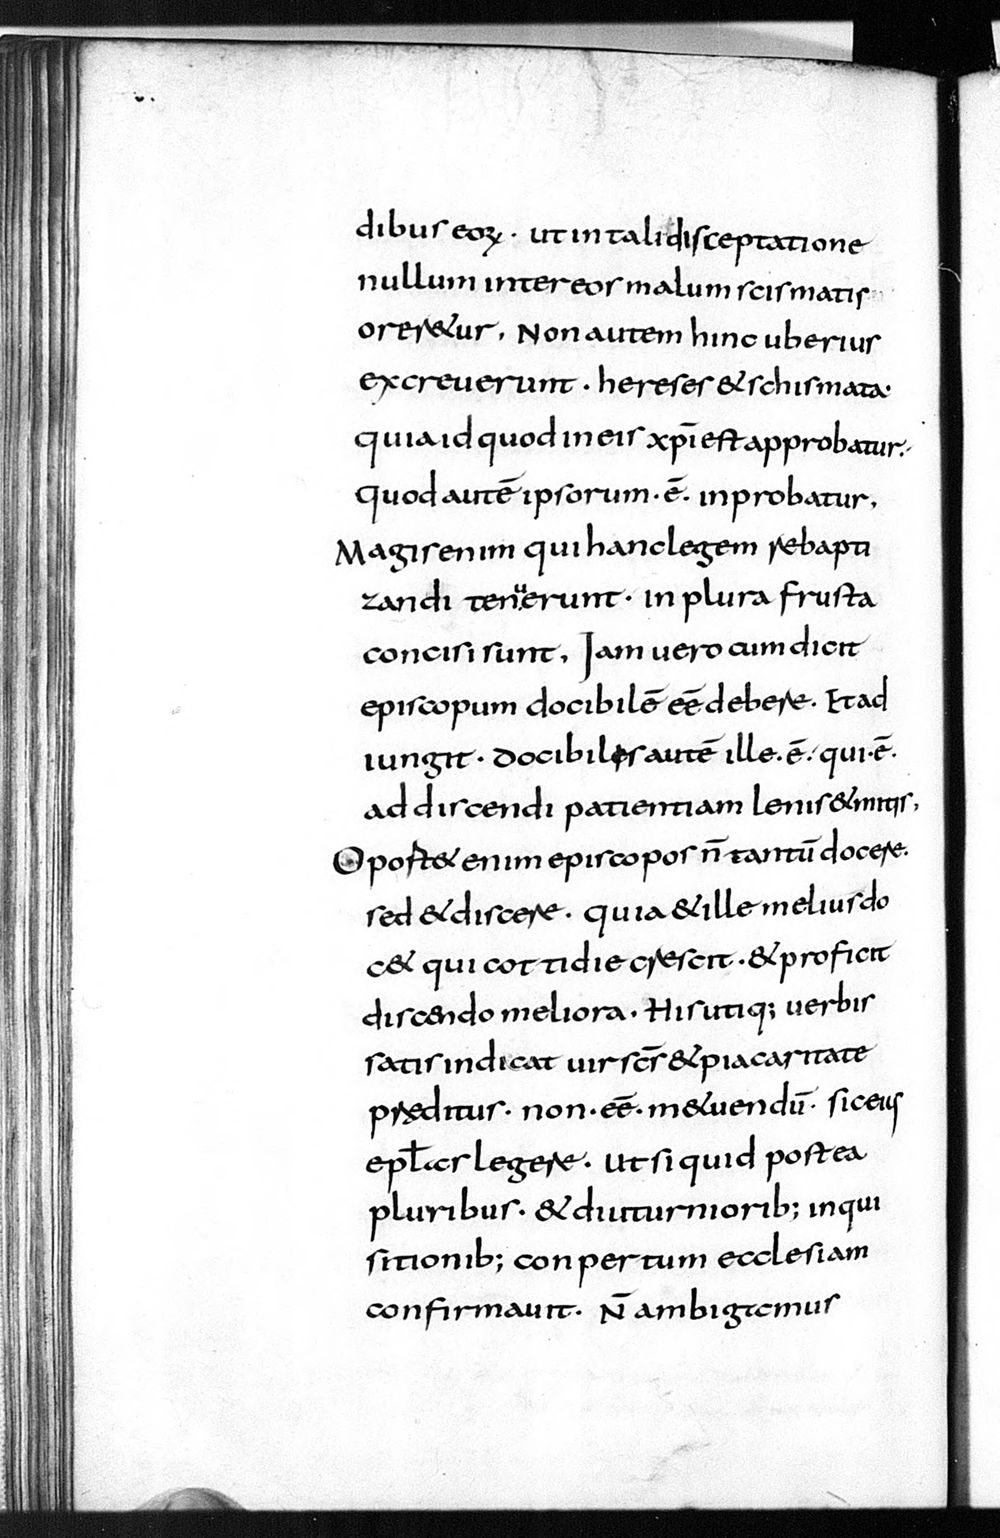 dibus eoꝝ · ut in tali disceptatione
nullum inter eos malum scismatis
orer&ur, Non autem hinc uberius
excreuerunt · hereses & schismata·
quia id quod in eis xp̄i est approbatur·
Quod autē ipsorum · ē · inprobatur,
Magis enim qui hanc legem rebapti
zandi tenuerunt · in plura frusta
concisi sunt, Jam uero cum dicit
episcopum docibilē eē debere · Et ad
iungit · Docibiles autē ille · ē · qui · ē ·
ad discendi patientiam lenis & mitis,
Oport& enim episcopos n̄ tantū docere·
sed & discere · quia & ille melius do
c& qui cottidie crescit · & proficit
discendo meliora · His utiq; uerbis
satis indicat uir scs̄ & pia caritate
pręditus · non · eē · m&uendū · sic eius
epłas legere · ut si quid postea
pluribus · & diuturniorib; inqui
sitionib; conpertum ecclesiam
confirmauit · N̄ ambigemus